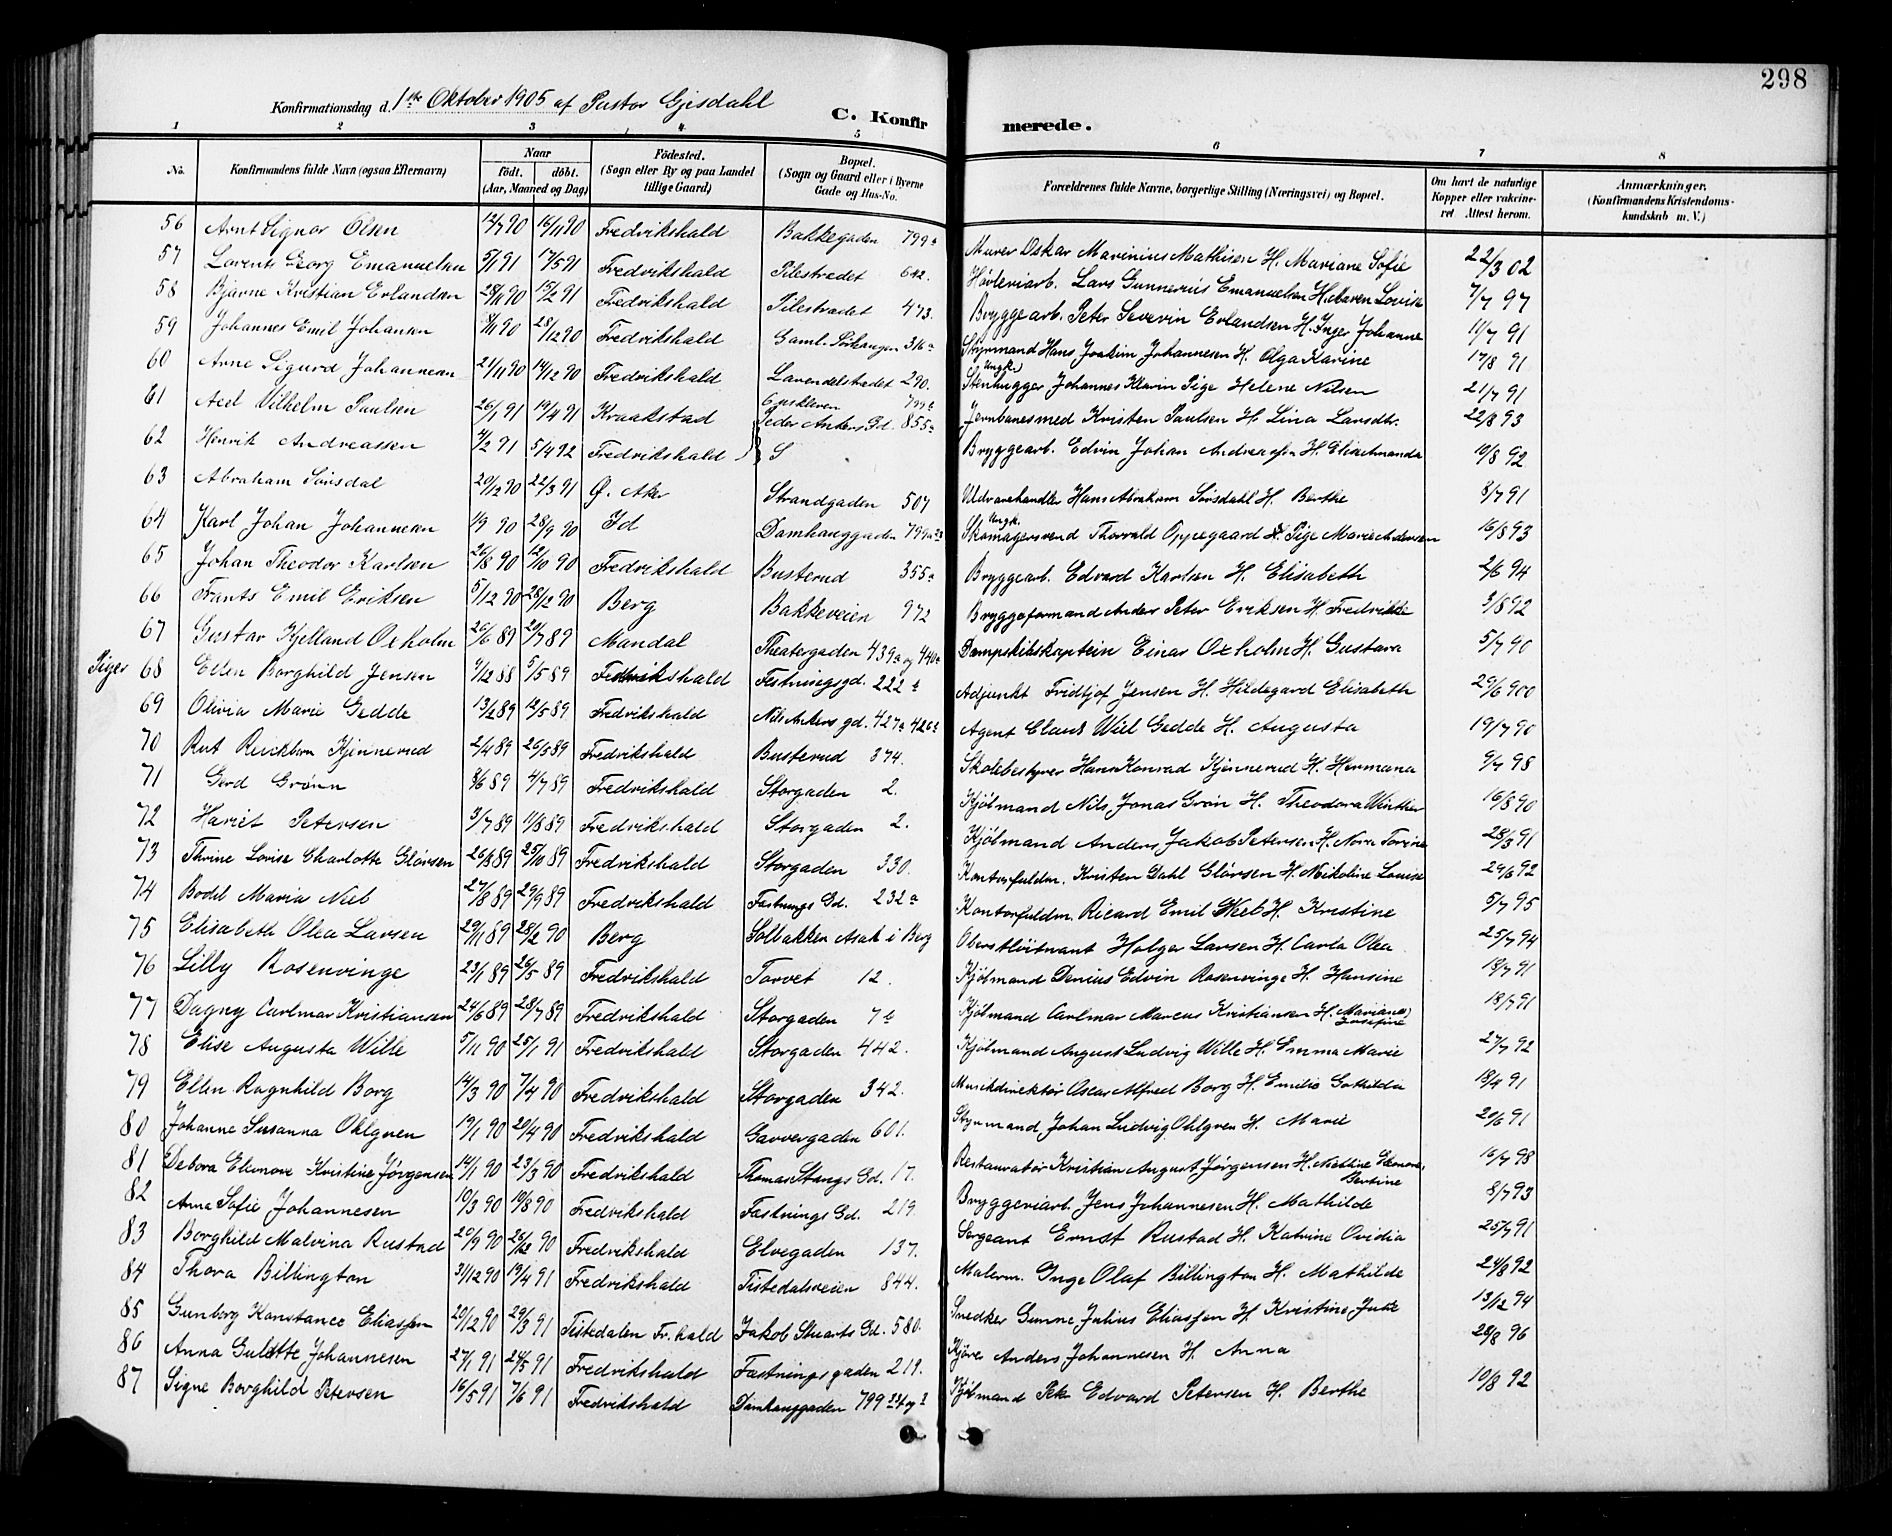 298
Konfirmationsdag d. 1ste Oktober 1905 af Pastor Gjesdahl
C. Konfirmerede.
1 2 3 4 5 6 7 8
No. Konfirmandens fulde Navn (ogsaa Efternavn) Naar födt. döbt. (Aar, Maaned og Dag) Födested. (Sogn eller By og paa Landet tillige Gaard) Bopæl. (Sogn og Gaard eller i Byerne Gade og Hus-No. Forældrenes fulde Navne, borgerlige Stilling (Næringsvei) og Bopæl. Om havt de naturlige Kopper eller vakcineret Attest herom. Anmærkninger, (Konfirmandens Kristendomskundskab m. V.)
56 Arnt Signor Olsen 12/7 90 16/11 90 Fredrikshald Bakkegaden 799a Murer Oskar Marinius Mathisen H. Mariane Sofie 22/3 02
57 Lorents Georg Emanuelsen 5/1 91 17/5 91 Fredrikshald Pilestrædet 642. Høvleriarb. Lars Gunnerius Emanuelsen H. Maren Lovise 7/7 97
58 Bjarne Kristian Erlandsen 28/11 90 15/2 91 Fredrikshald Pilestrædet 473. Bryggearb. Peter Severin Erlandsen H. Inger Johanne 11/7 91
59 Johannes Emil Johansen 8/11 90 28/12 90 Fredrikshald Gaml. 316a Styrmand Hans Joakim Johannesen H. Olga Karine 17/8 91
60 Arne Sigurd Johannesen 21/11 90 14/12 90 Fredrikshald Lavendelstrædet 290. Ungk. Stenhugger Johannes Klavin Pige Helene Nilsen 21/7 91
61 Axel Vilhelm Paulsen 26/1 91 19/4 91 Kraakstad Peder Ankers Gd. 855a Jernbanesmed Kristen Paulsen H. Lina Larsdtr. 22/8 93
62 Henrik Andreassen 4/2 91 5/4 92 Fredrikshald Bryggearb. Edvin Johan Andreassen H. Elise Amanda 10/8 92
63 Abraham Sørsdal 20/12 90 22/3 91 Ø. Aker Strandgaden 507 Uldvarehandler Hans Abraham Sørsdahl H. Berthe 8/7 91
64 Karl Johan Johannesen 1/9 90 28/9 90 Id Damhauggaden 799a Ungk. Skomagersvend Thorvald Oppegaard Pige Marie Andersen 16/8 93
65 Johan Theodor Karlsen 26/8 90 12/10 90 Fredrikshald Busterud 355a Bryggearb. Edvard Karlsen H. Elisabeth 2/6 94
66 Frants Emil Eriksen 5/12 90 28/12 90 Berg Bakkeveien 972 Bryggeformand Anders Peter Eriksen H. Fredrikke 3/8 92
67 Gustav Kjelland Oxholm 26/6 89 20/7 89 Mandal Theatergaden 439a og 440a Dampskibskaptein Einar Oxholm H. Gustava 5/7 90
Piger 68 Ellen Borghild Jensen 9/12 88 5/5 89 Fredrikshald Festningsgd. 222a Adjunkt Fridtjof Jensen H. Hildegard Elisabeth 29/6 900
69 Olivia Marie Gedde 13/2 89 12/5 89 Fredrikshald Nils Ankers gd. 427a 426a Agent Claus Wiel Gedde H. Augusta 19/7 90
70 Rut Kjønnerud 2/4 89 26/5 89 Fredrikshald Busterud 374. Skolebestyrer Hans Konrad Kjønnerud H. Hermana 9/7 98
71 Gerd Grønn 8/6 89 4/7 89 Fredrikshald Storgaden 2. Kjøbmand Nils Jonas Grøn H. Theodora Winther 16/8 90
72 Hariet Petersen 3/7 89 11/8 89 Fredrikshald Storgaden 2. Kjøbmand Anders Jakob Petersen H. Nora Torine 28/3 91
73 Thrine Lovise Charlotte Glørsen 26/8 89 25/10 89 Fredrikshald Storgaden 330. Kontorfuldm. Kristen Dahl Glørsen H. Nikoline Louise 29/6 92
74 Bodil Maria Neeb 27/8 89 29/9 89 Fredrikshald Fæstnings Gd. 232a Kontorfuldm. Ricard Emil Neeb H. Kristine 5/7 95
75 Elisabeth Olea Larsen 29/11 89 28/2 90 Berg Solbakken Asak i Berg Oberstløitnant Holger Larsen H. Carla Olea 25/7 94
76 Lilly Rosenvinge 23/1 89 26/5 89 Fredrikshald Torvet 12. Kjøbmand Denius Edvin Rosenvinge H. Hansine 18/7 91
77 Dagny Carlmar Kristiansen 24/6 89 28/7 89 Fredrikshald Storgaden 7a Kjøbmand Carlmar Marcus Kristiansen H. Mariane Josefine 18/7 91
78 Elise Augusta Wille 5/11 90 25/1 91 Fredrikshald Storgaden 442. Kjøbmand August Ludvig Wille H. Emma Marie 27/7 92
79 Ellen Ragnhild Borg 14/3 90 7/4 90 Fredrikshald Storgaden 342. Musikdirektør Oscar Alfred Borg H. Emilie Gothilda 18/4 91
80 Johanne Susanna Ohlgren 19/1 90 20/4 90 Fredrikshald Garvergaden 601. Styrmand Johan Ludvig Ohlgren H. Marie 20/6 91
81 Debora Elenore Kristine Jørgensen 14/1 90 23/3 90 Fredrikshald Thomas Stangs Gd. 17. Restauratør Kristian August Jørgensen H. Nathine Eleonora Bertine 16/7 98
82 Anna Sofie Johannesen 10/3 90 10/8 90 Fredrikshald Fæstnings Gd. 219. Bryggeriarb. Jens Johannesen H. Mathilde 8/7 93
83 Borghild Malvina Rustad 20/9 90 26/12 90 Fredrikshald Elvegaden 137. Sergeant Ernst Rustad H. Katrine Ovidia 25/7 91
84 Thora Billington 31/12 90 19/4 91 Fredrikshald Tistedalsveien 844. Malerm. Inge Olaf Billington H. Mathilde 24/8 92
85 Gunborg Konstance Eliassen 20/12 90 29/3 91 Tistedalen Fr.hald Jakob Stuarts Gd. 580. Snedker Gunne Julius Eliassen H. Kristine Jutte 13/12 94
86 Anna Gulette Johannesen 27/1 91 24/5 91 Fredrikshald Fæstningsgaden 219. Kjøre Anders Johannesen H. Anna 28/8 96
87 Signe Borghild Petersen 16/5 91 7/6 91 Fredrikshald Damhauggaden 799 Kjøbmand Peter Edvard Petersen H. Berthe 10/8 92